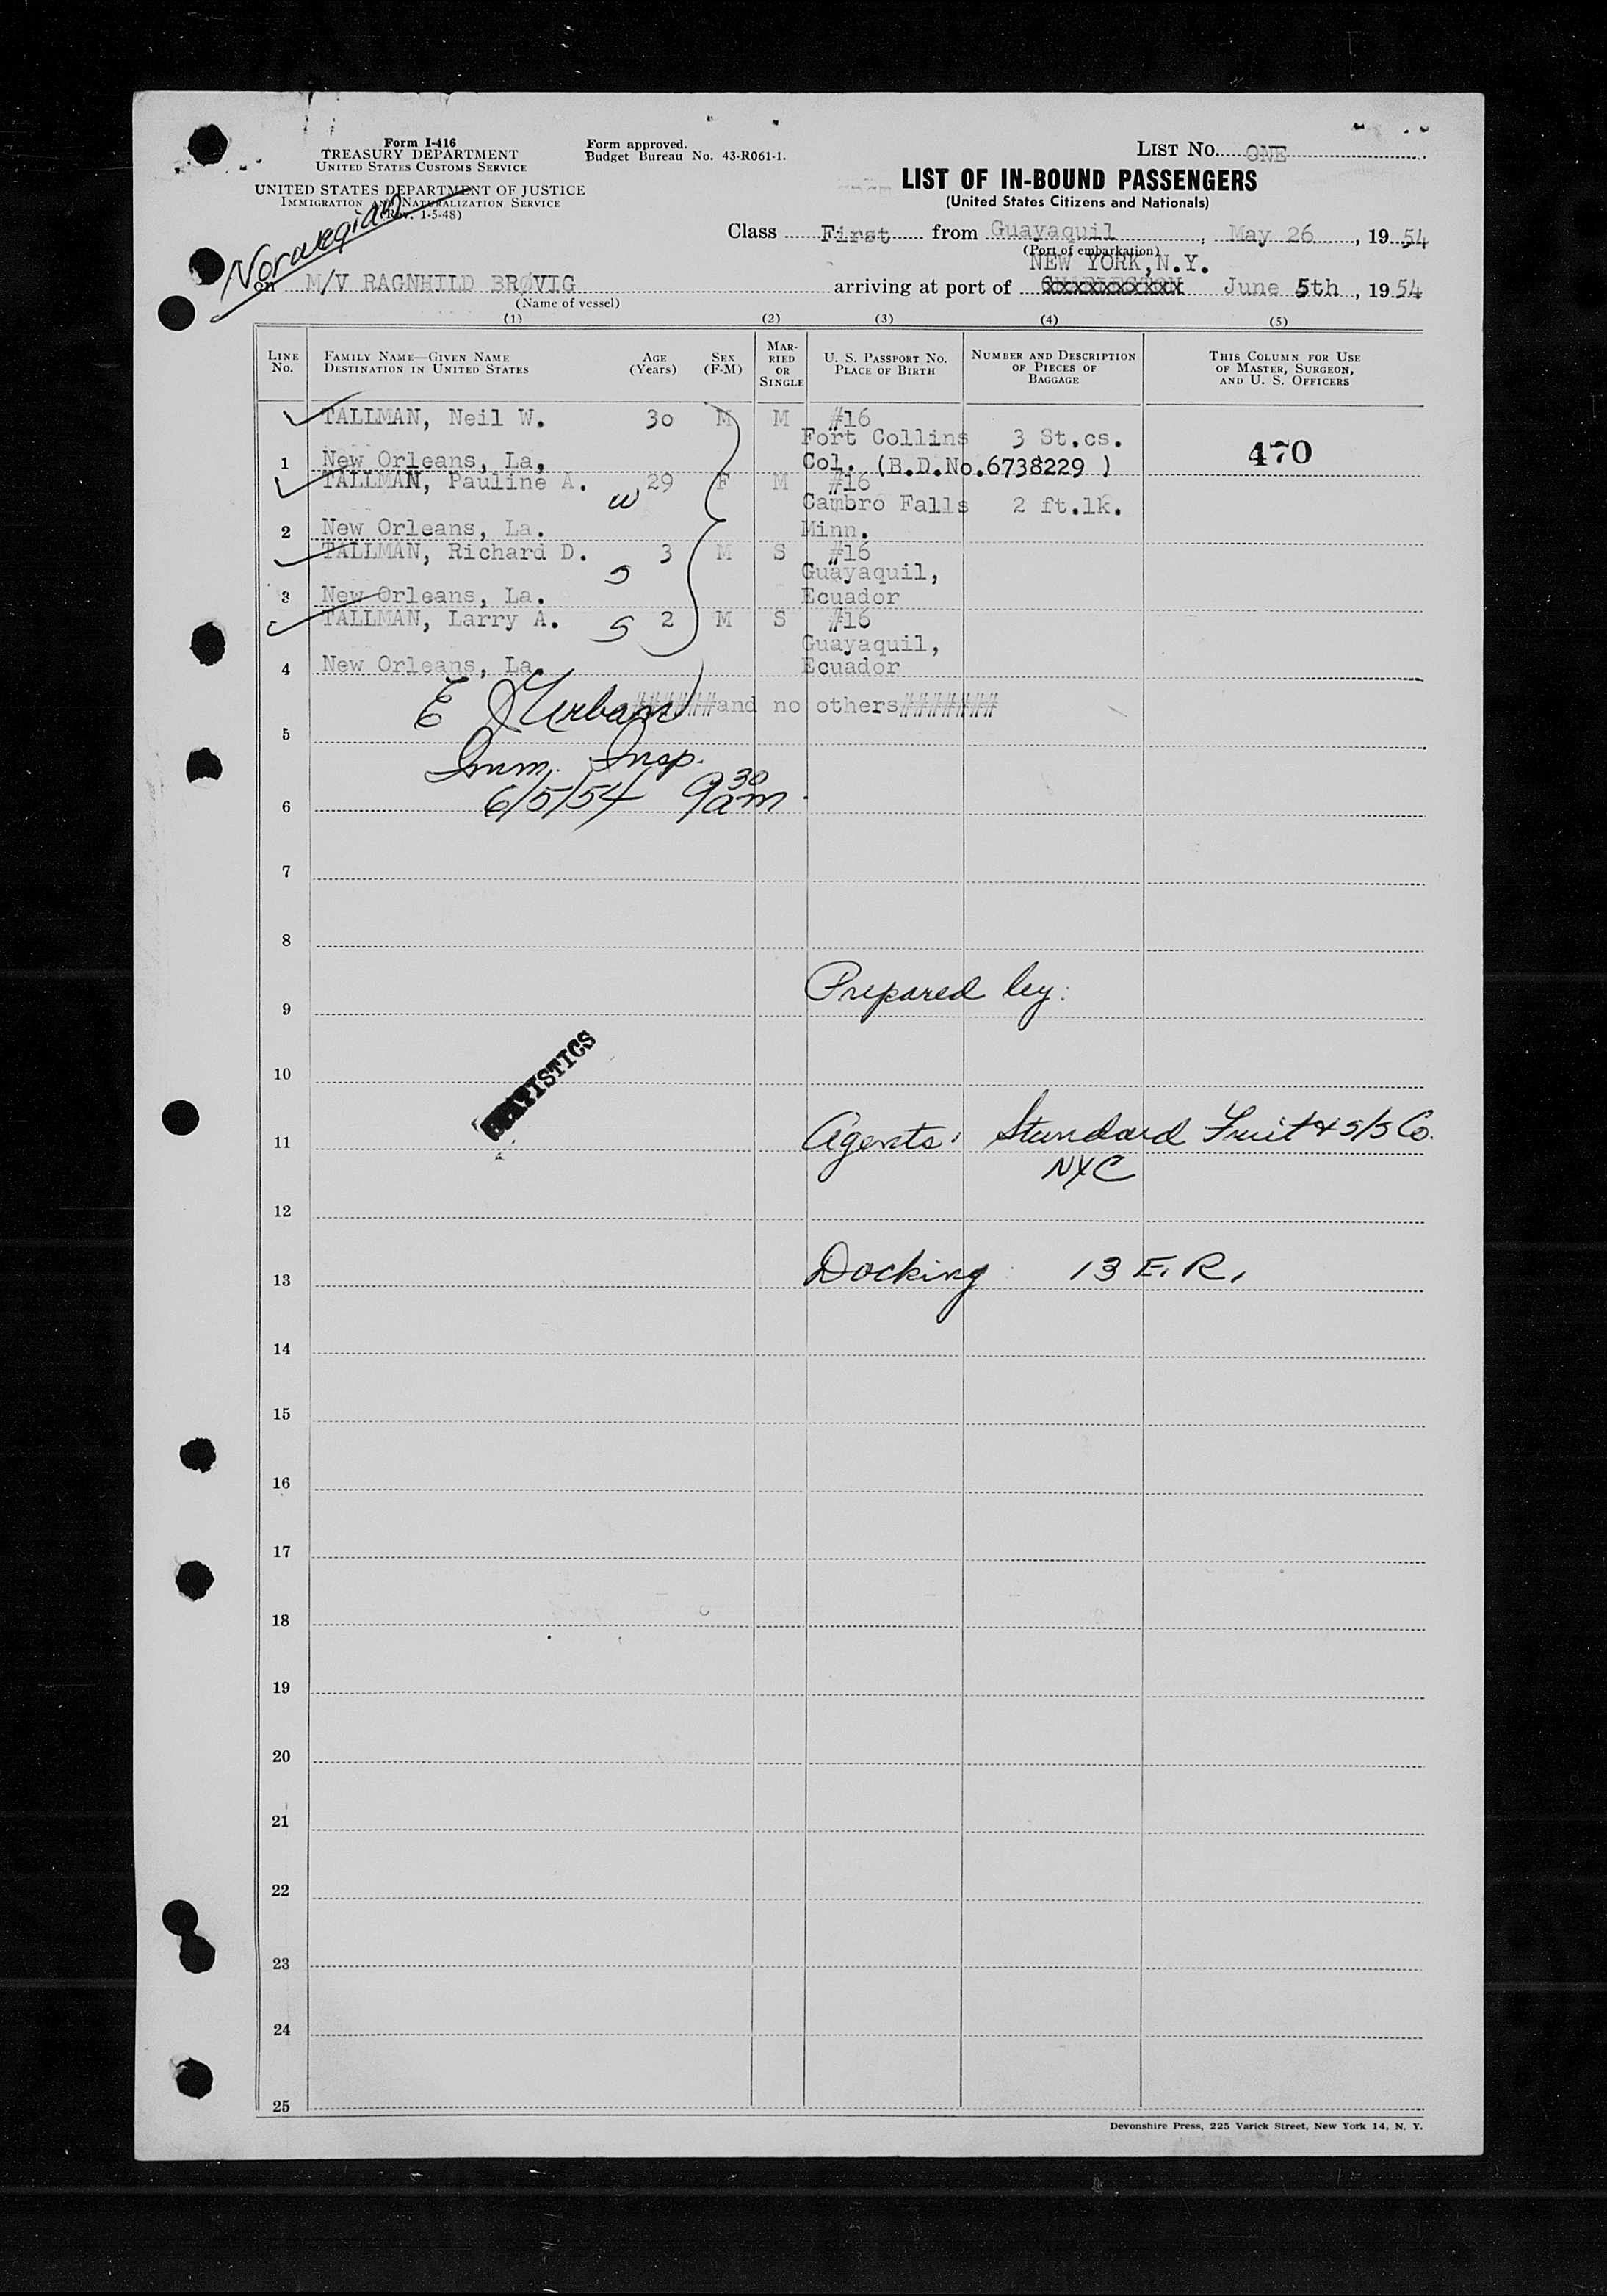 Form I-416
TREASURY DEPARTMENT
UNITED STATES CUSTOMS SERVICE
UNITED STATES DEPARTMENT OF JUSTICE
IMMIGRATION AND NATURALIZATION SERVICE
(Rev. 1-5-48)
Form approved.
Budget Bureau No. 43-R061-1.
LIST No. ONE
LIST OF IN-BOUND PASSENGERS
(United States Citizens and Nationals)
Norwegian
Class First from Guayaquil, May 26, 1954
(Port of embarkation)
NEW YORK, N.Y.
on M/V RAGNHILD BRØVIG arriving at port of June 5th, 1954
(Name of vessel)
(1) (2) (3) (4) (5)
LINE No. FAMILY NAME—GIVEN NAME DESTINATION IN UNITED STATES AGE (Years) SEX (F-M) MARRIED OR SINGLE U. S. PASSPORT No. PLACE OF BIRTH NUMBER AND DESCRIPTION OF PIECES OF BAGGAGE THIS COLUMN FOR USE OF MASTER, SURGEON, AND U. S. OFFICERS
TALLMAN, Neil W. 30 M M #16
Fort Collins 3 St.cs.
470
1 New Orleans, La. Col. (B.D.No.6738229 )
TALLMAN, Pauline A. 29 F M #16
w Cambro Falls 2 ft.lk.
2 New Orleans, La. Minn.
TALLMAN, Richard D. 3 M S #16
S Guayaquil,
3 New Orleans, La. Ecuador
TALLMAN, Larry A. S 2 M S #16
Guayaquil,
4 New Orleans, La. Ecuador
######and no others#######
E Urban
5
Imm. Insp.
6 6/5/54 9 30 am
7
8
Prepared by:
9
10
STATISTICS
11 Agents: Standard Fruit & S/S Co.
NYC
12
13 Docking: 13 E. R.
14
15
16
17
18
19
20
21
22
23
24
25
Devonshire Press, 225 Varick Street, New York 14, N. Y.